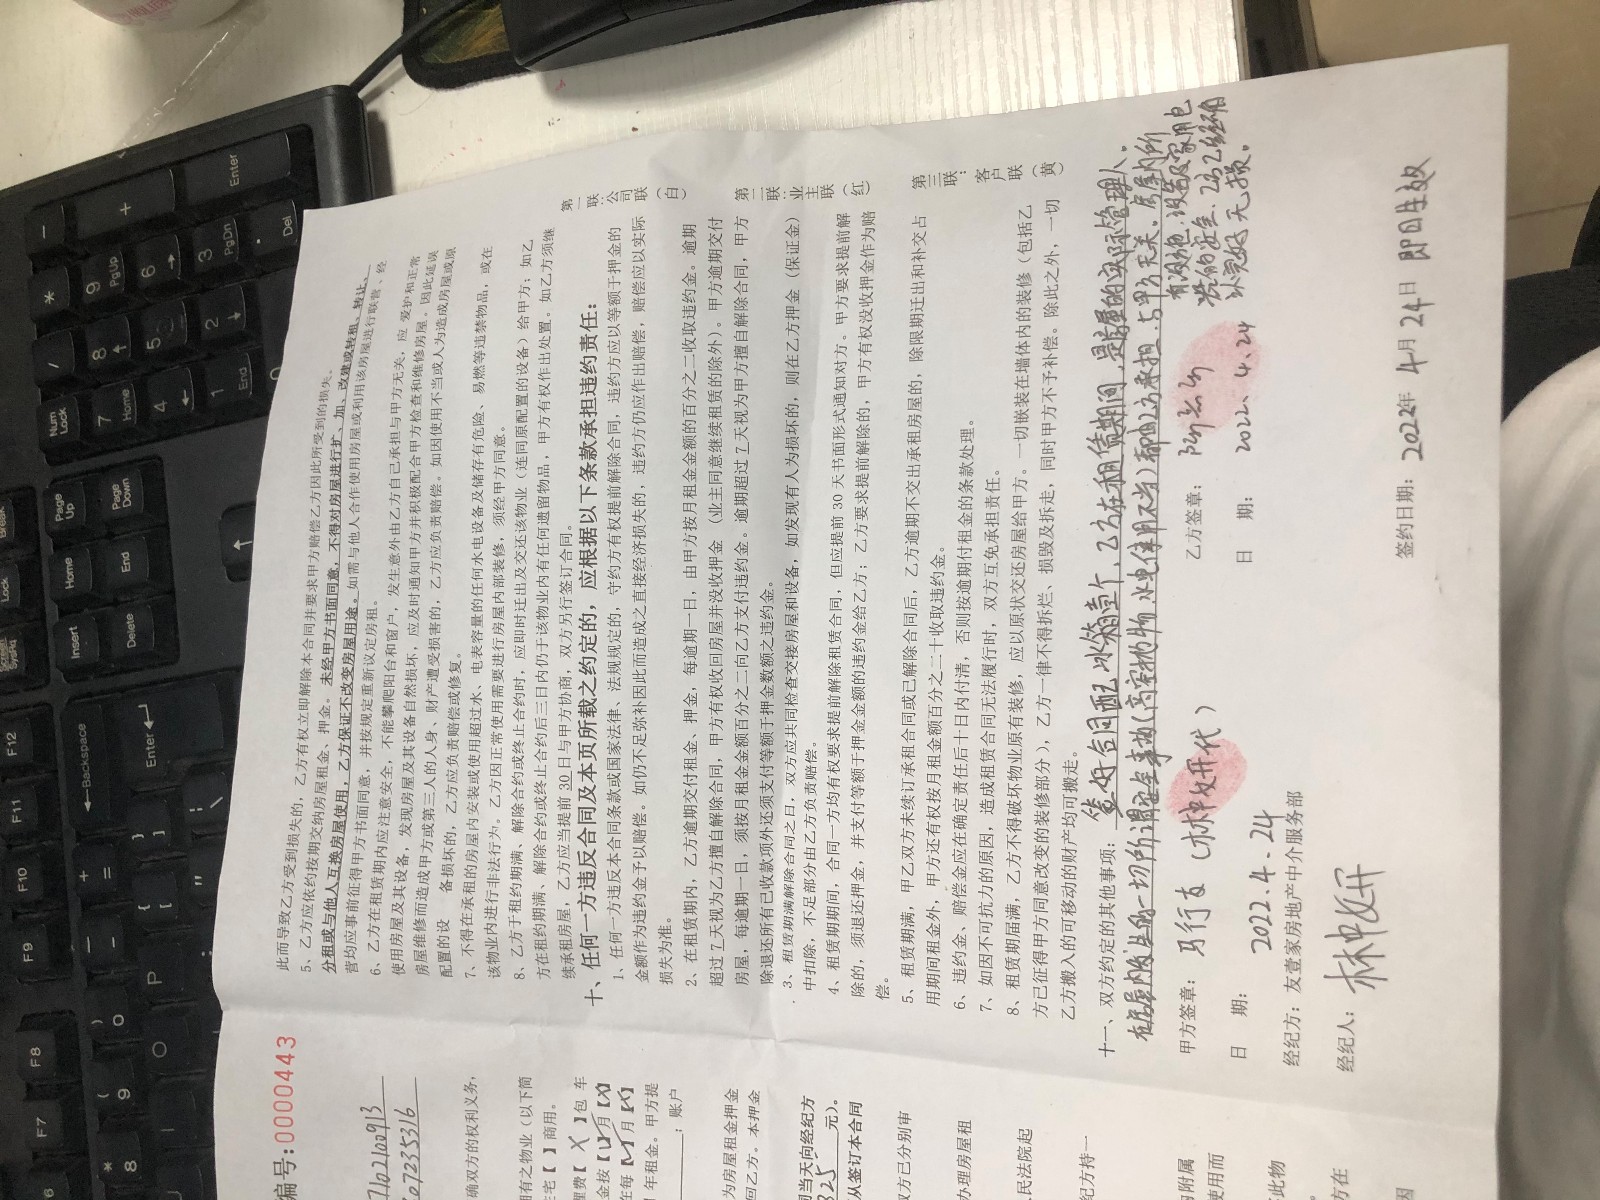 此而导致乙方受到损失的，乙方有权立即解除本合同并要求甲方赔偿乙方因此所受到的损失。
5、乙方应依约按期交纳房屋租金、押金。未经甲方书面同意，不得对房屋进行扩、加、改建或转租、转让、
分租或与他人互换房屋使用，乙方保证不改变房屋用途。如需与他人合作使用房屋或利用该房屋进行联营、经
营均应事前征得甲方书面同意，并按规定重新议定房租。
6、乙方在租赁期内应注意安全，不能攀爬阳台和窗户，发生意外由乙方自己承担与甲方无关，应 爱护和正常
使用房屋及其设备，发现房屋及其设备自然损坏，应及时通知甲方并积极配合甲方检查和维修房屋。因此延误
房屋维修而造成甲方或第三人的人身、财产遭受损害的，乙方应负责赔偿。如因使用不当或人为造成房屋或原
配置的设 备损坏的，乙方应负责赔偿或修复。
7、不得在承租的房屋内安装或使用超过水、电表容量的任何水电设备及储存有危险、易燃等违禁物品，或在
该物业内进行非法行为。乙方因正常使用需要进行房屋内部装修，须经甲方同意。
8、乙方于租约期满、解除合约或终止合约时，应即时迁出及交还该物业（连同原配置的设备）给甲方；如乙
方在租约期满、解除合约或终止合约后三日内仍于该物业内有任何遗留物品，甲方有权作出处置。如乙方须继
续承租房屋，乙方应当提前 30 日与甲方协商，双方另行签订合同。
十、任何一方违反合同及本页所载之约定的，应根据以下条款承担违约责任：
1、任何一方违反本合同条款或国家法律、法规规定的，守约方有权提前解除合同，违约方应以等额于押金的
金额作为违约金予以赔偿。如仍不足弥补因此而造成之直接经济损失的，违约方仍应作出赔偿，赔偿应以实际
损失为准。
2、在租赁期内，乙方逾期交付租金、押金，每逾期一日，由甲方按月租金金额的百分之二收取违约金。逾期
超过 7 天视为乙方擅自解除合同，甲方有权收回房屋并没收押金（业主同意继续租赁的除外）。甲方逾期交付
房屋，每逾期一日，须按月租金金额百分之二向乙方支付违约金。逾期超过 7 天视为甲方擅自解除合同，甲方
除退还所有已收款项外还须支付等额于押金数额之违约金。
3、租赁期期满解除合同之日，双方应共同检查交接房屋和设备，如发现有人为损坏的，则在乙方押金（保证金）
中扣除，不足部分由乙方负责赔偿。
4、租赁期期间，合同一方均有权要求提前解除租赁合同，但应提前 30 天书面形式通知对方。甲方要求提前解
除的，须退还押金，并支付等额于押金金额的违约金给乙方；乙方要求提前解除的，甲方有权没收押金作为赔
偿。
5、租赁期满，甲乙双方未续订承租合同或已解除合同后，乙方逾期不交出承租房屋的，除限期迁出和补交占
用期间租金外，甲方还有权按月租金额百分之二十收取违约金。
6、违约金、赔偿金应在确定责任后十日内付清，否则按逾期付租金的条款处理。
7、如因不可抗力的原因，造成租赁合同无法履行时，双方互免承担责任。
8、租赁期届满，乙方不得破坏物业原有装修，应以原状交还房屋给甲方。一切嵌装在墙体内的装修（包括乙
方已征得甲方同意改变的装修部分），乙方一律不得拆烂、损毁及拆走，同时甲方不予补偿。除此之外，一切
乙方搬入的可移动的财产均可搬走。
十一、双方约定的其他事项：签好合同配冰箱壹个，乙方在租赁期间，是房屋的实际管理人。
在房屋内发生的一切所谓安全事故（高空抛物 水电使用不当）都由乙方承担，与甲方无关。房屋内所
有设施，设备及家用电
以完好无损。
甲方签章：（林中妍代）
乙方签章：
日 期：2022.4.24
日 期：2022.4.24
经纪方：友壹家房地产中介服务部
经纪人：林中妍
签约日期：2022年4月24日 即日生效
第一联：公司联（白）
第二联：业主联（红）
第三联：客户联（黄）
编号:0000443
确双方的权利义务，
商用。
包 车
年租金。甲方提
；账户
为房屋租金押金
回乙方。本押金
司当天向经纪方
825 元）。
从签订本合同
双方已分别审
办理房屋租
民法院起
纪方持一
Num Lock
Enter
Del
End
Home
PgUp
PgDn
Page Up
Page Down
Insert
Delete
Backspace
F12
F11
F10
F9
F8
F7